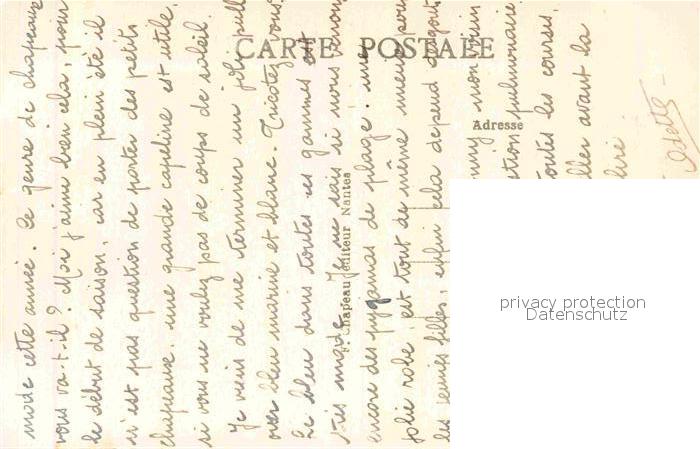 CARTE POSTALE
Adresse
F. Chapeau, éditeur Nantes
mode cette année. Ce genre de chapeaux
vous va-t-il ? Moi j'aime bien cela, pour
le début de saison, car en plein été il
n'est pas question de porter des petits
chapeaux, une grande capeline est utile,
si vous ne voulez pas de coups de soleil.
Je viens de me terminer un joli pull
over bleu marine et blanc. Tricotez vous
Le bleu dans toutes ses gammes est
très mode. Je ne sais si nous verrons
encore des pyjamas de plage : une
jolie robe est tout de même mieux pour
les jeunes filles, enfin cela dépend des goûts
mon
pulmonaire
toutes les courses,
aller avant la
Odette
privacy protection
Datenschutz